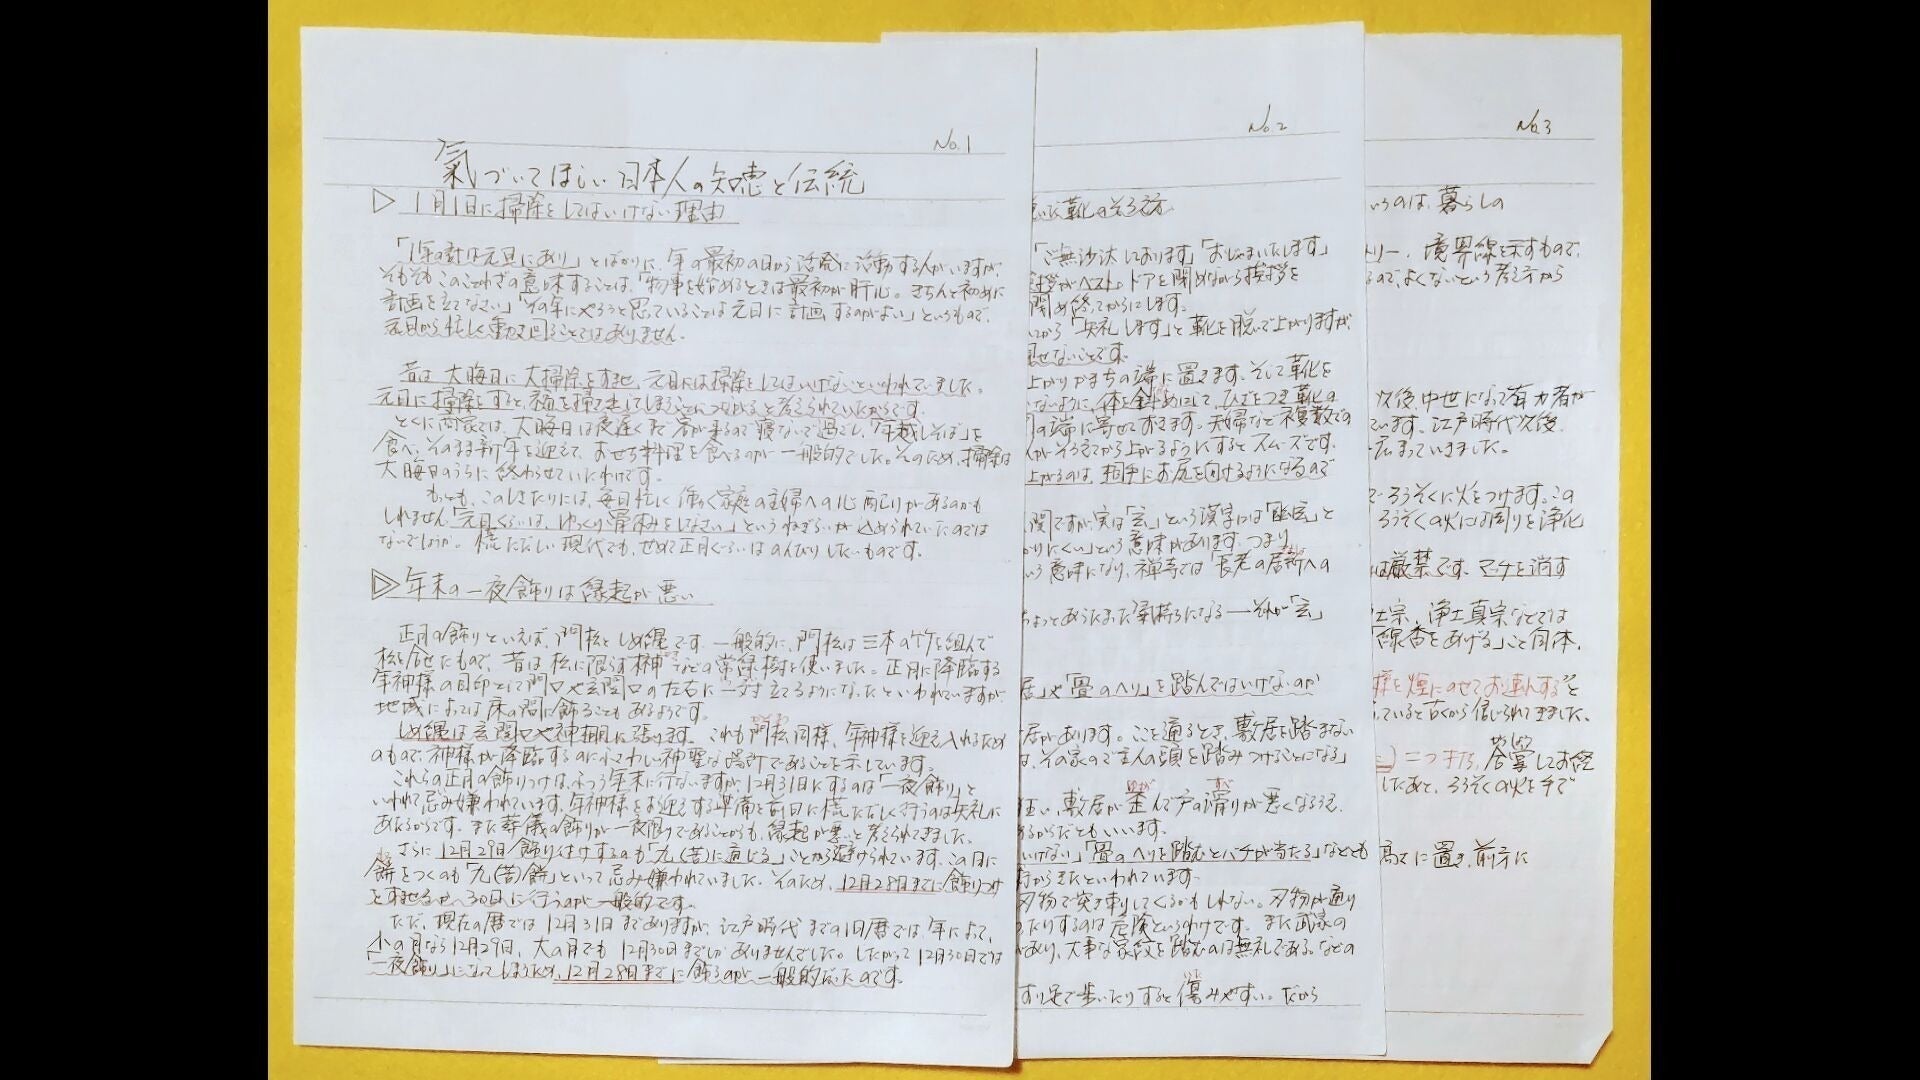 No.1
氣づいてほしい日本人の知恵と伝統
▷ 1月1日に掃除をしてはいけない理由
「1年の計は元旦にあり」とばかりに、年の最初の日から活発に活動する人がいますが、
そもそもこのことわざの意味することは、「物事を始めるときは最初が肝心。きちんと初めに
計画を立てなさい」「その年にやろうと思っていることは元日に計画するのがよい」というもので、
元日から忙しく動き回ることではありません。
昔は大晦日に大掃除をすませ、元日には掃除をしてはいけないといわれていました。
元日に掃除をすると、福を掃き出してしまうことにつながると考えられていたからです。
とくに商家では、大晦日は夜遅くまで客が来るので寝ないで過ごし、「年越しそば」を
食べ、そのまま新年を迎えて、おせち料理を食べるのが一般的でした。そのため、掃除は
大晦日のうちに終わらせていたわけです。
もっとも、このしきたりには、毎日忙しく働く家庭の主婦への心配りがあるのかも
しれません。「元日くらいは、ゆっくり骨休みをしなさい」というねぎらいが込められていたのでは
ないでしょうか。慌ただしい現代でも、せめて正月ぐらいはのんびりしたいものです。
▷ 年末の一夜飾りは縁起が悪い
正月の飾りといえば、門松としめ縄です。一般的に、門松は三本の竹を組んで
松を合せたもので、昔は松に限らず榊などの常緑樹を使いました。正月に降臨する
年神様の目印として門口や玄関口の左右に一対立てるようになったといわれていますが、
地域によっては床の間に飾ることもあるようです。
しめ縄は玄関口や神棚に張ります。これも門松同様、年神様を迎え入れるため
のもので、神様が降臨するのにふさわしい神聖な場所であることを示しています。
これらの正月の飾りつけは、ふつう年末に行ないますが、12月31日にするのは「一夜飾り」と
いわれて忌み嫌われています。年神様をお迎えする準備を前日に慌ただしく行うのは失礼に
あたるからです。また葬儀の飾りが一夜限りであることからも、縁起が悪いと考えられてきました。
さらに12月29日に飾り付けするのも「九(苦)に通じる」ことから避けられています。この日に
餅をつくのも「九(苦)餅」といって忌み嫌われていました。そのため、12月28日までに飾りつけ
をすませるか、30日に行うのが一般的です。
ただ、現在の暦では12月31日までありますが、江戸時代までの旧暦では、年によって、
小の月なら12月29日、大の月でも12月30日までしかありませんでした。したがって12月30日では
「一夜飾り」になってしまうため、12月28日までに飾るのが一般的だったのです。
No.2
靴のそろえ方
「ご無沙汰しております」「おじゃまいたします」
挨拶がベスト。ドアを閉めながら挨拶を
閉め終ってからにします。
から「失礼します」と靴を脱いで上がりますが、
見せないことです。
上がりかまちの端に置きます。そして靴を
ないように、体を斜めにして、ひざをつき靴の
の端に寄せておきます。夫婦など複数での
がそろえてから上がるようにするとスムーズです。
上がるのは、相手にお尻を向けるようになるので
関ですが、実は「玄」という漢字には「幽玄」と
かりにくい」という意味があります。つまり
いう意味になり、禅寺では「長老の居所への
ちょっとあらたまった氣持ちになる——それが「玄」
居」や「畳のヘリ」を踏んではいけないのか
居があります。ここを通るとき、敷居を踏まない
は、その家のご主人の頭を踏みつけることになる」
狂い、敷居が歪んで戸の滑りが悪くなるうえ、
るからだともいいます。
いけない」「畳のヘリを踏むとバチが当たる」などとも
からきたといわれています。
刃物で突き刺してくるかもしれない。刃物が通り
たりするのは危険というわけです。また武家の
があり、大事な家紋を踏むのは無礼である、などの
すり足で歩いたりすると傷みやすい。だから
No.3
いうのは、暮らしの
トリー、境界線を示すもので、
るので、よくないという考え方から
次後、中世になって有力者が
ています。江戸時代次後
広まっていきました。
で、ろうそくに火をつけます。この
ろうそくの火には周りを浄化
は厳禁です。マッチを消す
土宗、浄土真宗などでは
「線香をあげる」こと自体、
様を煙にのせてお運びする”と
ていると古くから信じられてきました。
につきたら、合掌してお経
したあと、ろうそくの火を手で
高さに置き、前方に